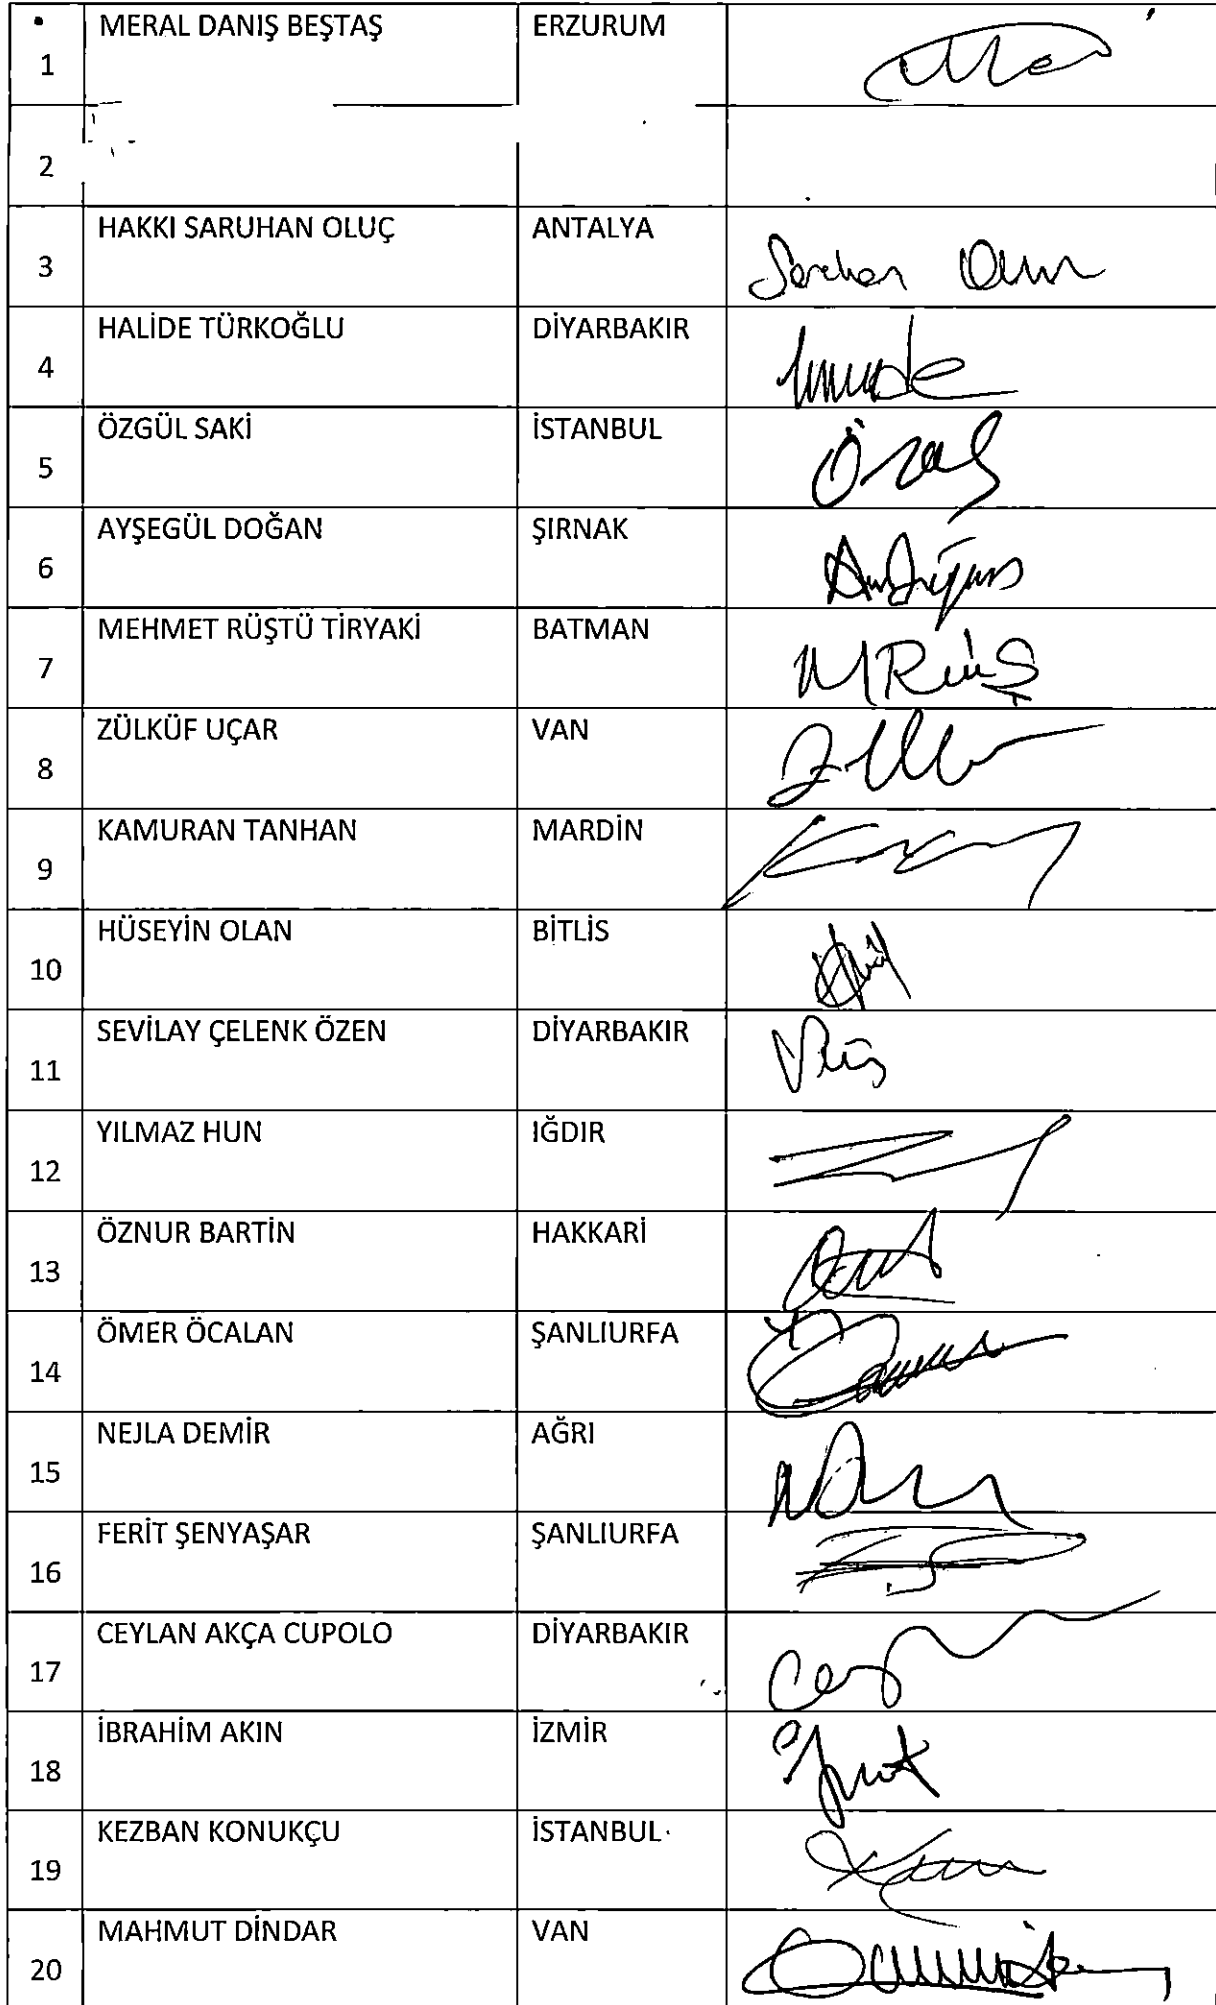 1 MERAL DANIŞ BEŞTAŞ ERZURUM
2
3 HAKKI SARUHAN OLUÇ ANTALYA
4 HALİDE TÜRKOĞLU DİYARBAKIR
5 ÖZGÜL SAKİ İSTANBUL
6 AYŞEGÜL DOĞAN ŞIRNAK
7 MEHMET RÜŞTÜ TİRYAKİ BATMAN
8 ZÜLKÜF UÇAR VAN
9 KAMURAN TANHAN MARDİN
10 HÜSEYİN OLAN BİTLİS
11 SEVİLAY ÇELENK ÖZEN DİYARBAKIR
12 YILMAZ HUN IĞDIR
13 ÖZNUR BARTİN HAKKARİ
14 ÖMER ÖCALAN ŞANLIURFA
15 NEJLA DEMİR AĞRI
16 FERİT ŞENYAŞAR ŞANLIURFA
17 CEYLAN AKÇA CUPOLO DİYARBAKIR
18 İBRAHİM AKIN İZMİR
19 KEZBAN KONUKÇU İSTANBUL
20 MAHMUT DİNDAR VAN